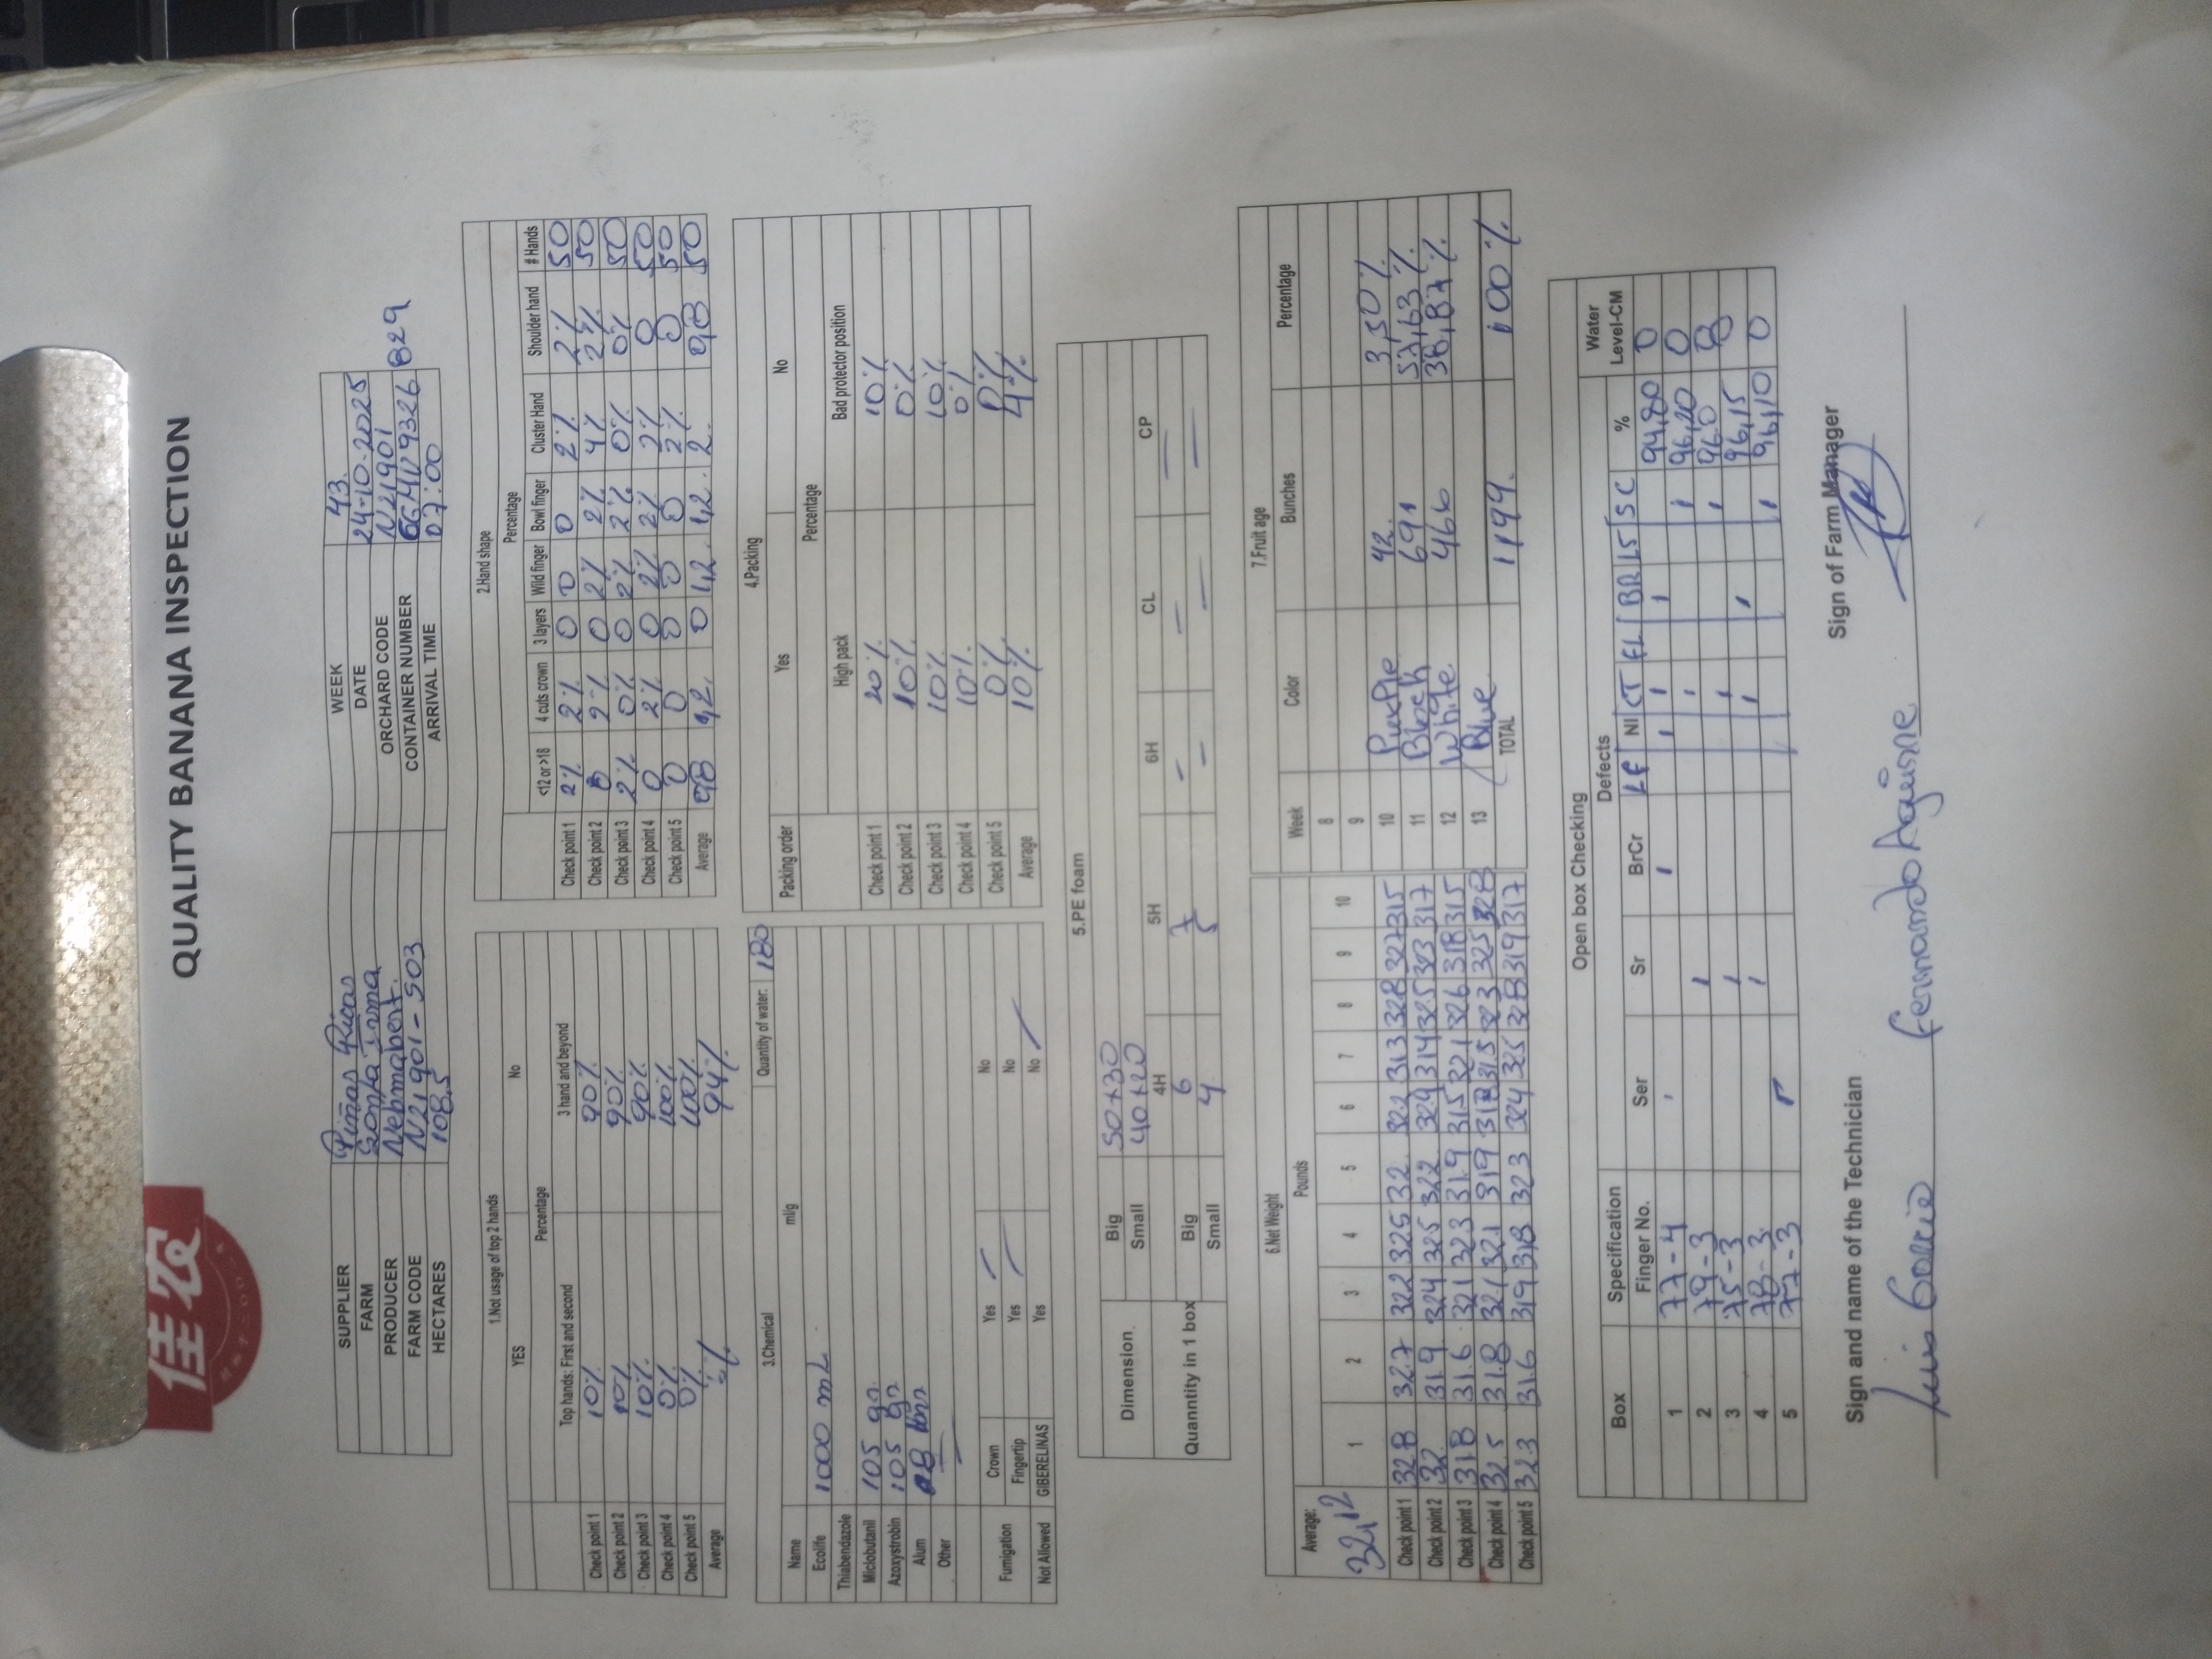 佳农
QUALITY BANANA INSPECTION
SUPPLIER Piñas Ricas WEEK 43.
FARM Santa Irma DATE 24-10-2025
PRODUCER Nebmabert. ORCHARD CODE N21901
FARM CODE N21901-503 CONTAINER NUMBER 9326 829
HECTARES 108.5 ARRIVAL TIME 07:00
1.Not usage of top 2 hands
YES No
Percentage
Top hands: First and second 3 hand and beyond
Check point 1 10% 90%
Check point 2 10% 90%
Check point 3 10% 90%
Check point 4 0% 100%
Check point 5 0% 100%
Average % 94%
2.Hand shape
Percentage
<12 or >18 4 cuts crown 3 layers Wild finger Bowl finger Cluster Hand Shoulder hand # Hands
Check point 1 2% 2% 0 0 0 2% 2% 50
Check point 2 0 2% 0 2% 2% 4% 2% 50
Check point 3 2% 0% 0 2% 2% 0% 0% 50
Check point 4 0 2% 0 2% 2% 2% 0 50
Check point 5 0 0 0 0 0 2% 0 50
Average 0,8 1,2. 0 1,2. 1,2. 2. 0,8 50
3.Chemical Quantity of water: 180
Name ml/g
Ecolife 1000 mL
Thiabendazole
Miclobutanil 105 gr.
Azoxystrobin 105 gr
Alum
Other
Fumigation Crown Yes No
Fingertip Yes No
Not Allowed GIBERELINAS Yes No
4.Packing
Packing order Yes No
Percentage
High pack Bad protector position
Check point 1 20% 10%
Check point 2 10% 0%
Check point 3 10% 10%
Check point 4 10%. 0%
Check point 5 0% 0%
Average 10% 4%
5.PE foam
Dimension Big 50x30
Small 40x20
4H 5H 6H CL CP
Quanntity in 1 box Big 6 7 – – –
Small 4 5 – – –
6.Net Weight
Average: Pounds
32,12 1 2 3 4 5 6 7 8 9 10
Check point 1 32.8 32.7 322 325 32. 32.2 313 328 327 315
Check point 2 32. 31.9 324 325 322 324 314 325 323 317
Check point 3 31.8 31.6 321 323 31.9 315 321 326 318 315
Check point 4 32.5 31.8 32.1 32.1 319 318 315 323 325 328
Check point 5 32.3 31.6 319 318 323 324 325 328 319 317
7.Fruit age
Week Color Bunches Percentage
8
9
10 Purple 42. 3,50%
11 Black 691 57,63%
12 White 466 38,87%
13 Blue
TOTAL 1199. 100%
Open box Checking
Box Specification Defects Water Level-CM
Finger No. Ser Sr BrCr LF NI CT FL BR LS SC %
1 77-4 94,80 0
2 79-3 96,20 0
3 75-3 96.0 0
4 78-3 96,15
5 77-3 96,10 0
Sign and name of the Technician Sign of Farm Manager
Luis Garcia Fernando Aguirre